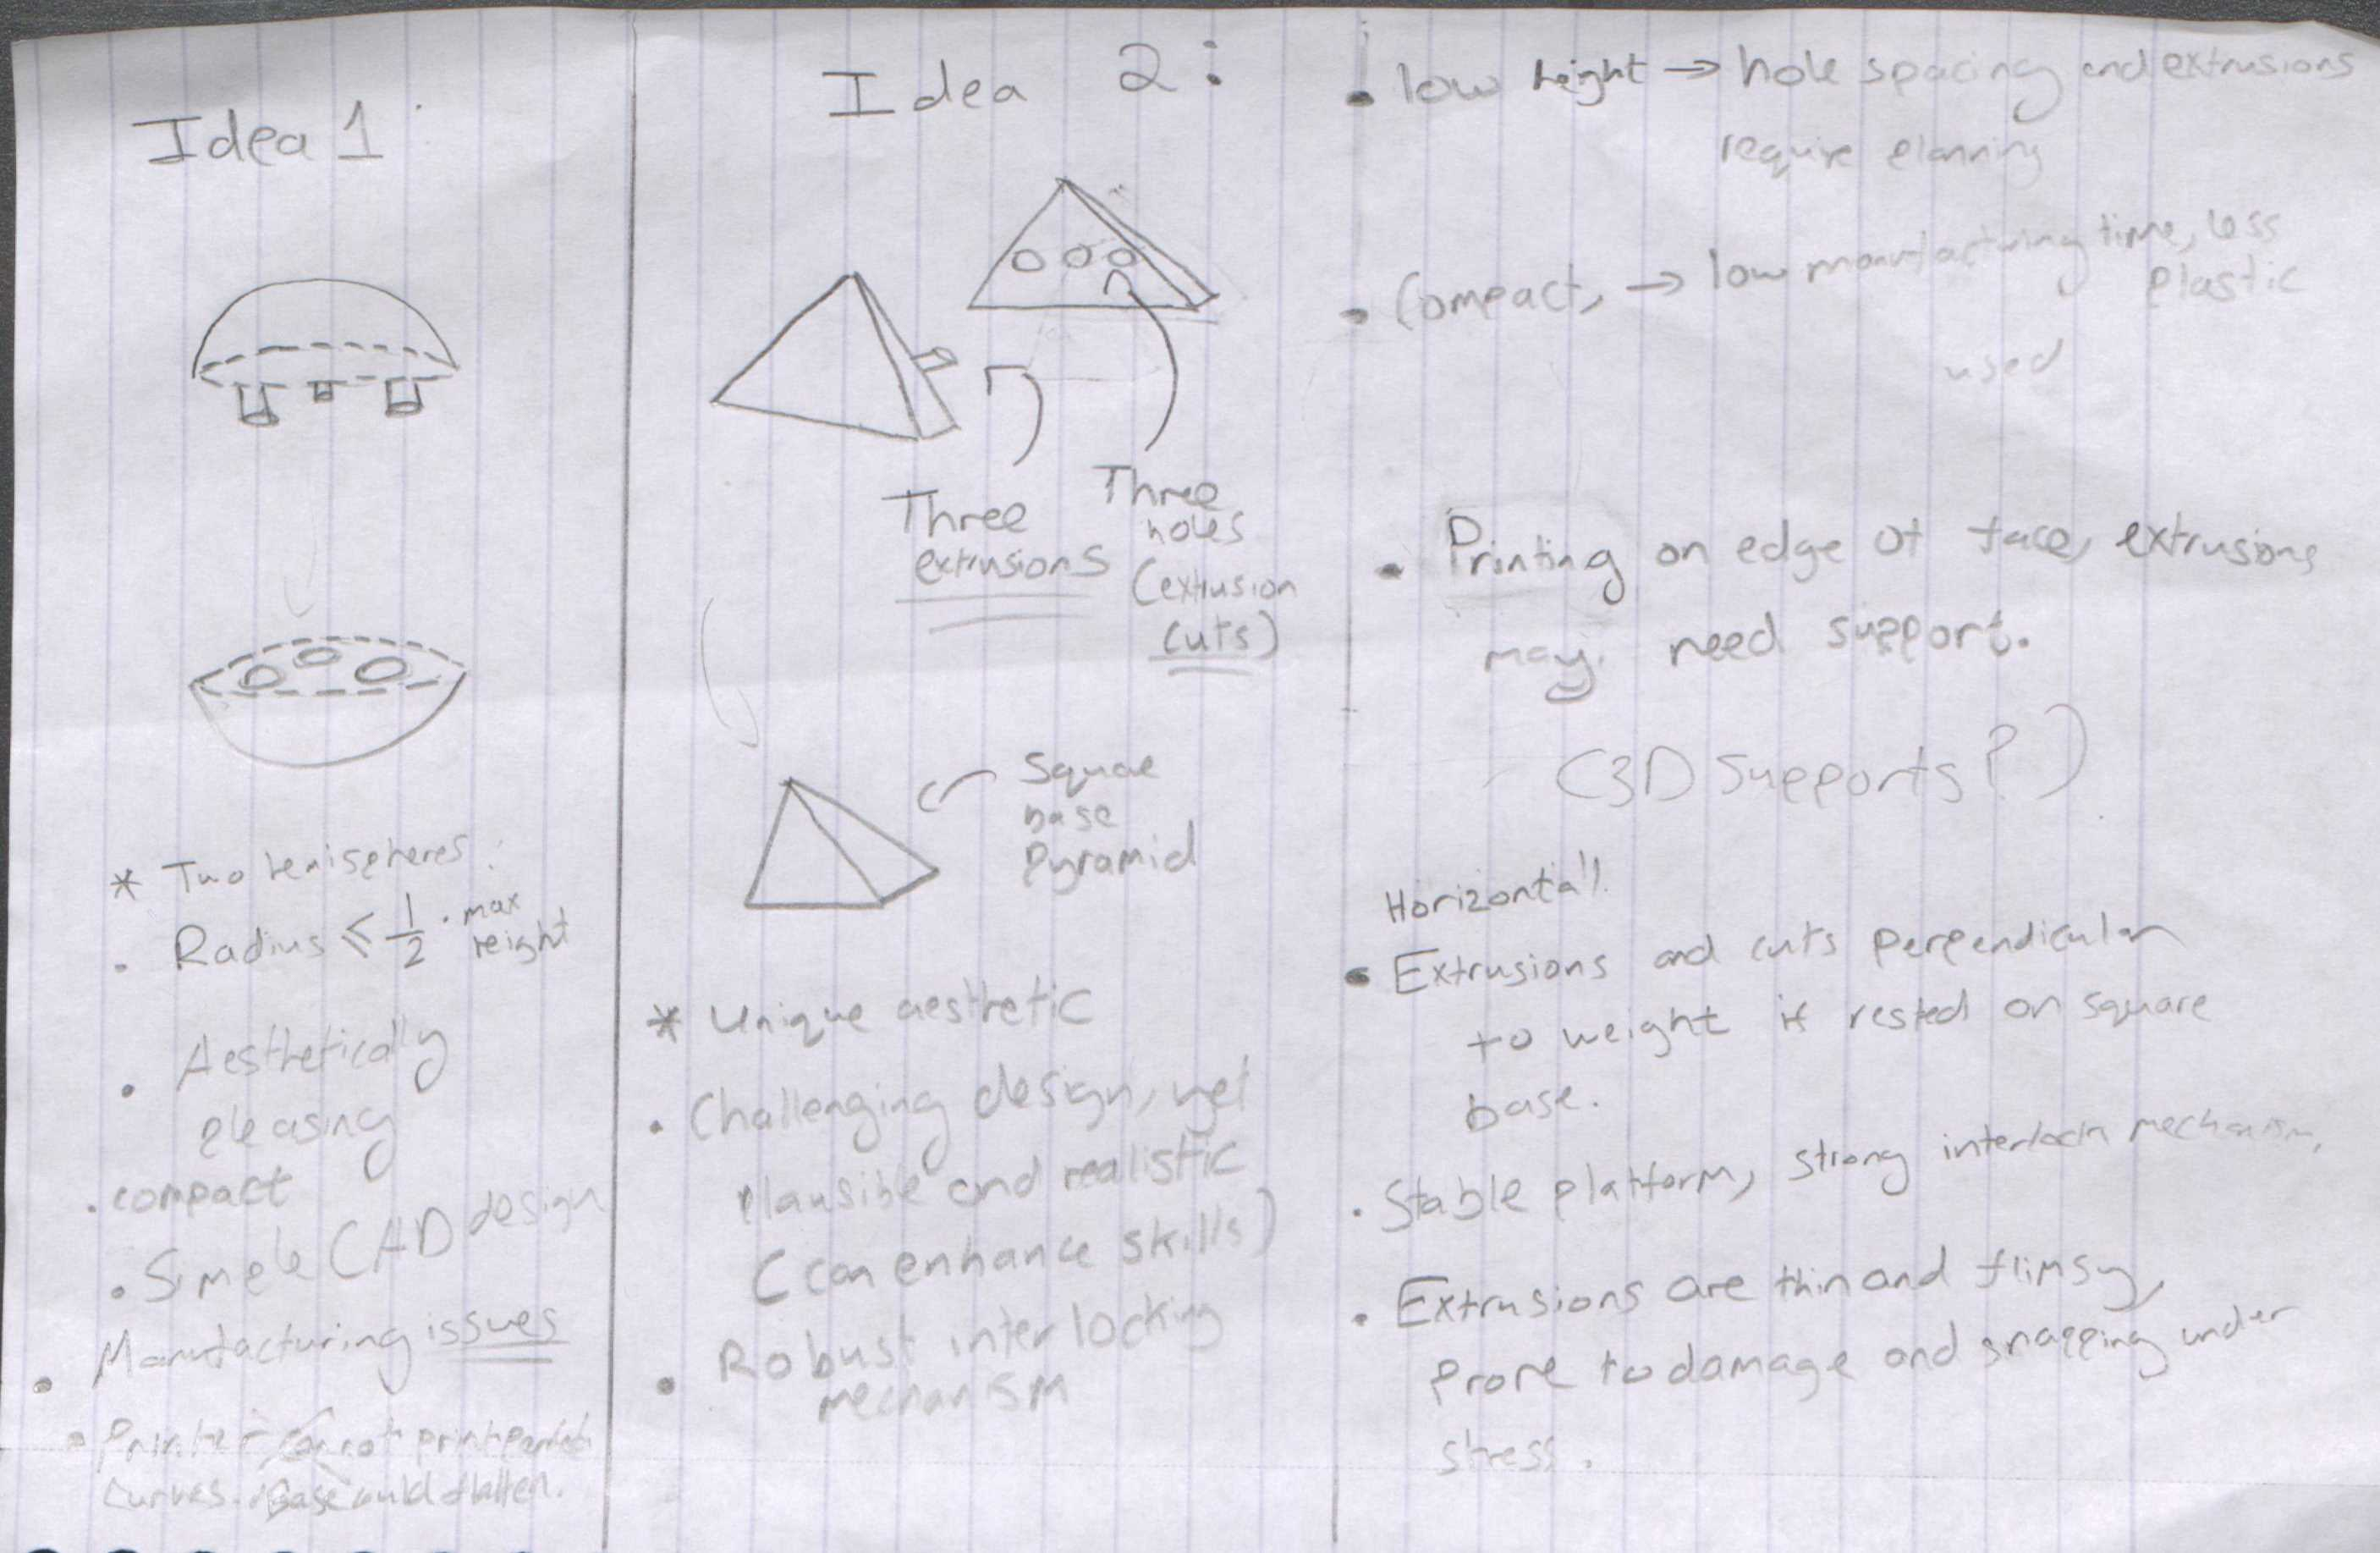 Idea 1:
* Two hemispheres:
• Radius ≤ 1/2 · max height
• Aesthetically
pleasing
• compact
• Simple CAD design
• Manufacturing issues
• Printer cannot print perfect
curves. Base could flatten.
Idea 2:
Three
extrusions
Three
holes
(extrusion
cuts)
Square
base
pyramid
* Unique aesthetic
• Challenging design, yet
plausible and realistic
(can enhance skills)
• Robust interlocking
mechanism
• low height → hole spacing and extrusions
require planning
• Compact, → low manufacturing time, less
plastic
used
• Printing on edge of face, extrusions
may need support.
(3D Supports?)
Horizontal
• Extrusions and cuts perpendicular
to weight if rested on square
base.
• Stable platform, strong interlock mechanism,
• Extrusions are thin and flimsy,
prone to damage and snapping under
stress.